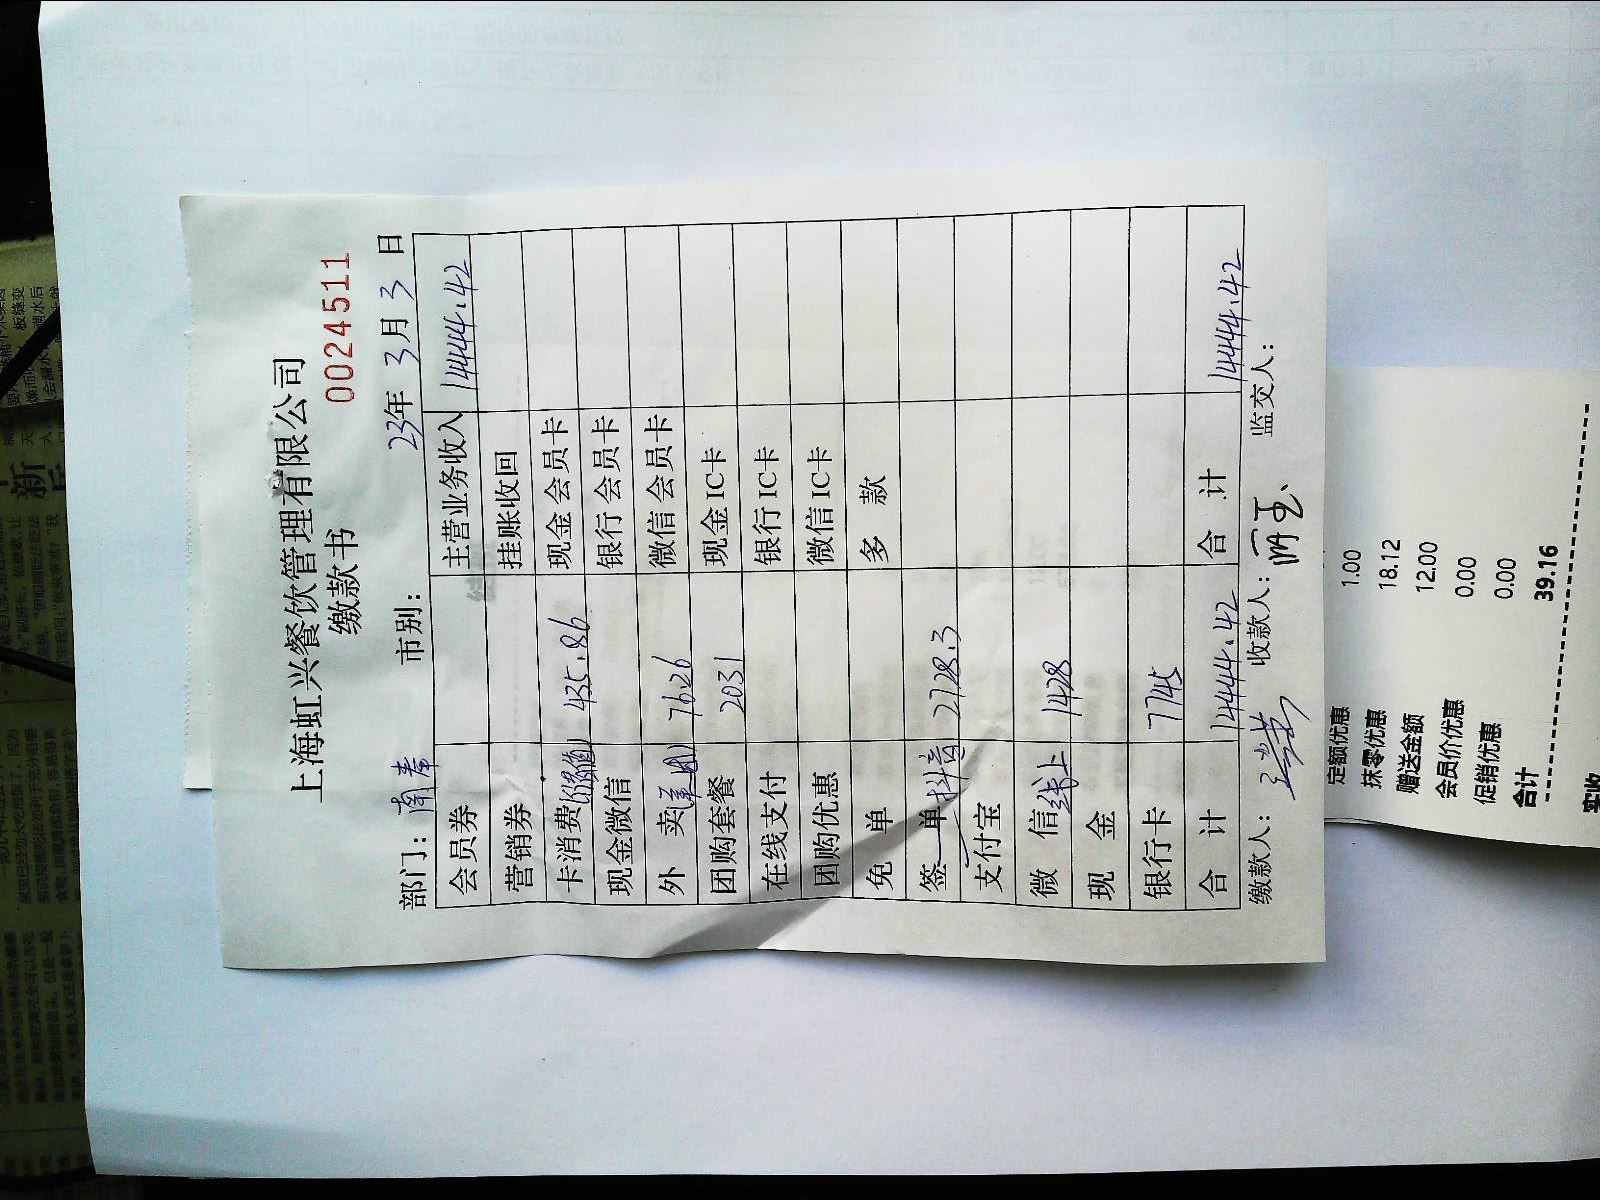 上海虹兴餐饮管理有限公司
缴款书
0024511
部门: 南奉 市别: 23年 3月 3日
会员券 主营业务收入 14444.42
营销券 挂账收回
卡消费 435.86 现金会员卡
现金微信 银行会员卡
外 卖 7626 微信会员卡
团购套餐 2031 现金IC卡
在线支付 银行IC卡
团购优惠 微信IC卡
免 单 多 款
签 单 抖音 2728.3
支付宝
微 信 线上 1428
现 金
银行卡 7745
合 计 14444.42 合 计 14444.42
缴款人: 收款人: 监交人:
定额优惠 1.00
抹零优惠 18.12
赠送金额 12.00
会员价优惠 0.00
促销优惠 0.00
合计 39.16